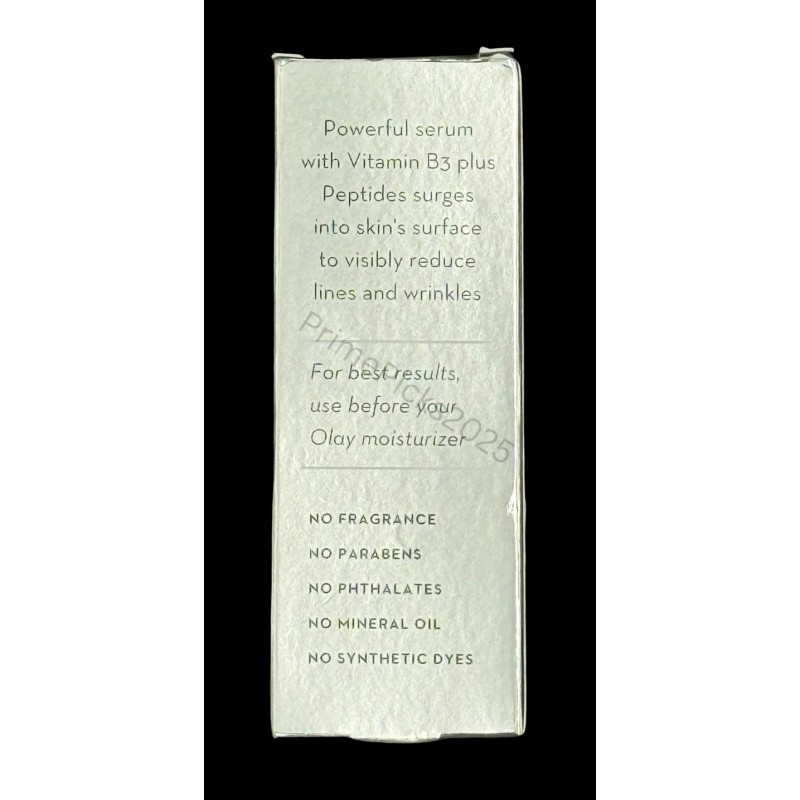 Powerful serum
with Vitamin B3 plus
Peptides surges
into skin's surface
to visibly reduce
lines and wrinkles
PrimePicks2025
For best results,
use before your
Olay moisturizer
NO FRAGRANCE
NO PARABENS
NO PHTHALATES
NO MINERAL OIL
NO SYNTHETIC DYES